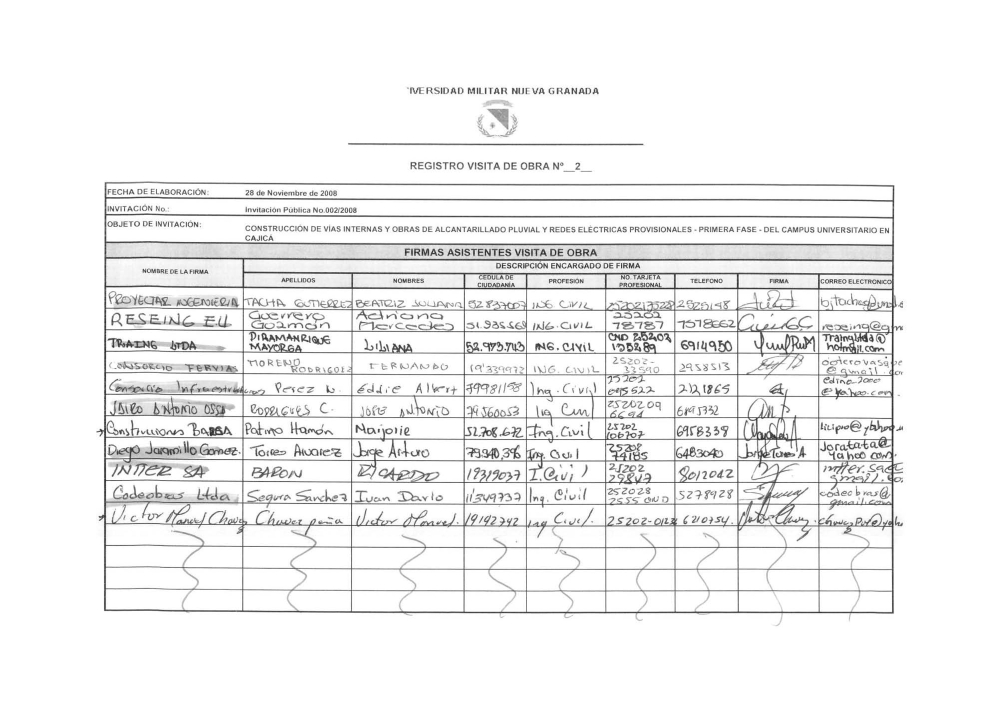 IVERSIDAD MILITAR NUEVA GRANADA
REGISTRO VISITA DE OBRA Nº__2__
FECHA DE ELABORACIÓN: 28 de Noviembre de 2008
INVITACIÓN No.: Invitación Pública No.002/2008
OBJETO DE INVITACIÓN: CONSTRUCCIÓN DE VÍAS INTERNAS Y OBRAS DE ALCANTARILLADO PLUVIAL Y REDES ELÉCTRICAS PROVISIONALES - PRIMERA FASE - DEL CAMPUS UNIVERSITARIO EN
CAJICÁ
FIRMAS ASISTENTES VISITA DE OBRA
NOMBRE DE LA FIRMA DESCRIPCIÓN ENCARGADO DE FIRMA
APELLIDOS NOMBRES CEDULA DE CIUDADANÍA PROFESIÓN NO. TARJETA PROFESIONAL TELEFONO FIRMA CORREO ELECTRONICO
PROYECTAR INGENIERIA TACHA GUTIERREZ BEATRIZ JULIANA 52.837007 ING CIVIL 2520213528 2525148
RESEING EU Guerrero Guzmán Adriana Mercedes 51.935.569 ING. CIVIL 25202 78787 7578662 reseing@gm
TRAING LTDA DIRAMANRIQUE MAYORGA LILIANA 52.973.743 ING. CIVIL CND 25202 135289 6914950 Traingltda@ hotmail.com
CONSORCIO FERVIAS MORENO RODRIGUEZ FERNANDO 19'339972 ING. CIVIL 25202- 33590 2958513
Consorcio Infraestructura Perez N. Eddie Albert 79981158 Ing. Civil 25202 095522 2121865 edina2000 @yahoo.com.
JAIRO ANTONIO OSSA RODRIGUES C. JOSE ANTONIO 79560053 Ing Civil 2520209 6694 6195332
Construcciones BARSA Patiño Hamón Marjorie 52.708.672 Ing. Civil 25202 106707 6958339
Diego Jaramillo Gomez. Torres Alvarez Jorge Arturo 79340,396 Ing Civil 25208 44185 6483040 Jorge Torres A joratata@ yahoo com.
INTER SA BARON RICARDO 19319037 I. Civil 25202 29847 8012042
Codeobras Ltda Segura Sanchez Ivan Dario 11349737 Ing. Civil 252028 2555 CND 5278928 codeobras@ gmail.com
Victor Manuel Chavez Chavez peña Victor Manuel. 19142742 ing Civil. 6210754.